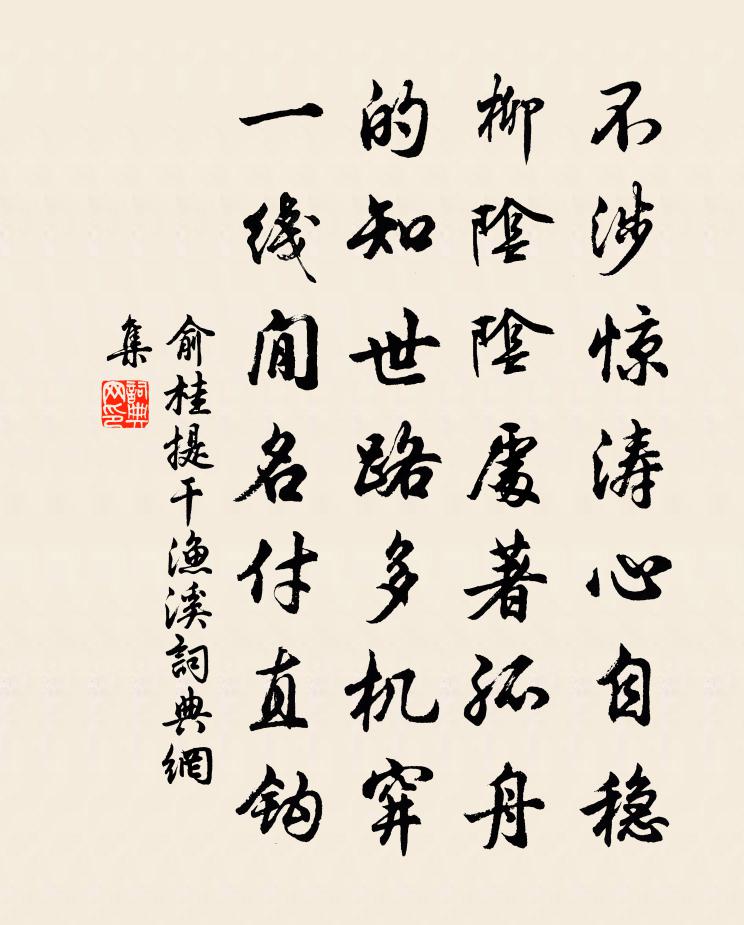 不涉惊涛心自稳
柳陰陰處著孤舟
的知世路多机穽
一线閒名付直钩
俞桂提干漁溪詞典網
集
詞典网印